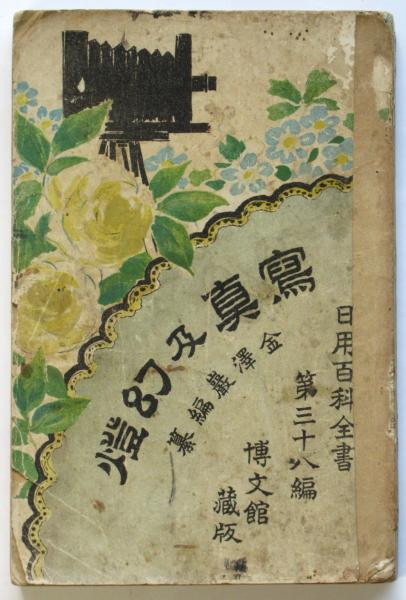 日用百科全書
第三十八編
寫真及幻燈
金澤巖編纂
博文館
藏版